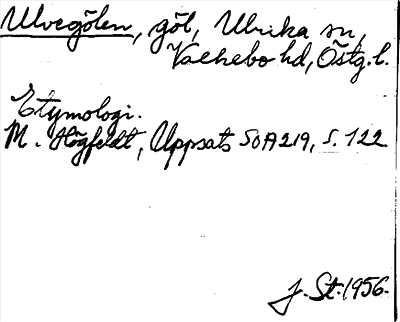 Ulvegölen, göl, Ulrika sn,
Valkebo hd, Östg. l.
Etymologi.
M. Högfeldt, Uppsats SOA 219, s. 122
J. St. 1956.